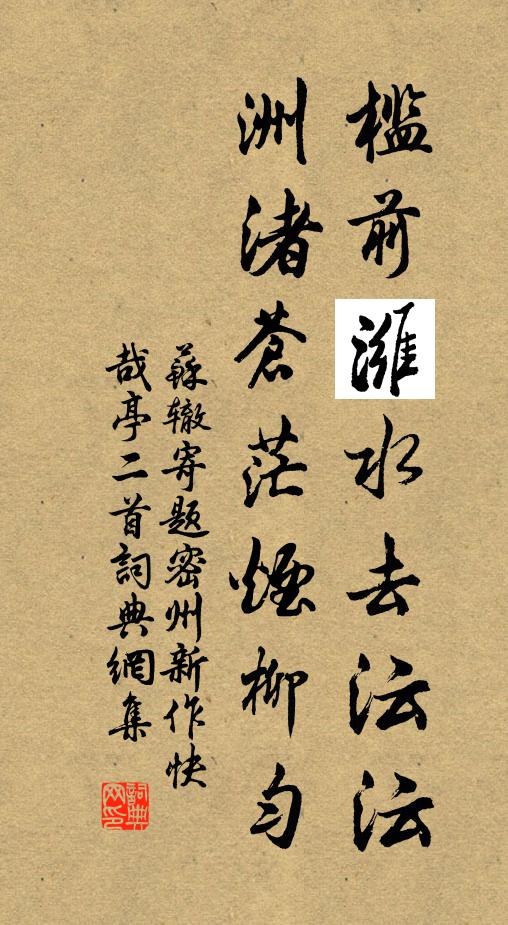 檻前濰水去沄沄
洲渚蒼茫煙柳勻
蘇轍寄題密州新作快
哉亭二首詞典網集
詞典網印